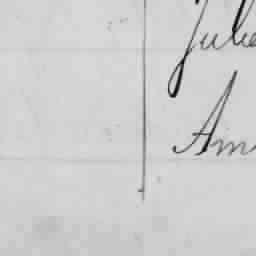 Jule
Am